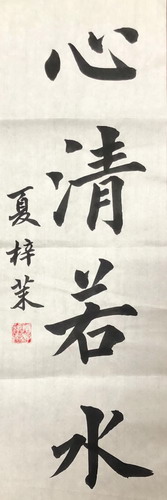 心清若水
夏梓茉